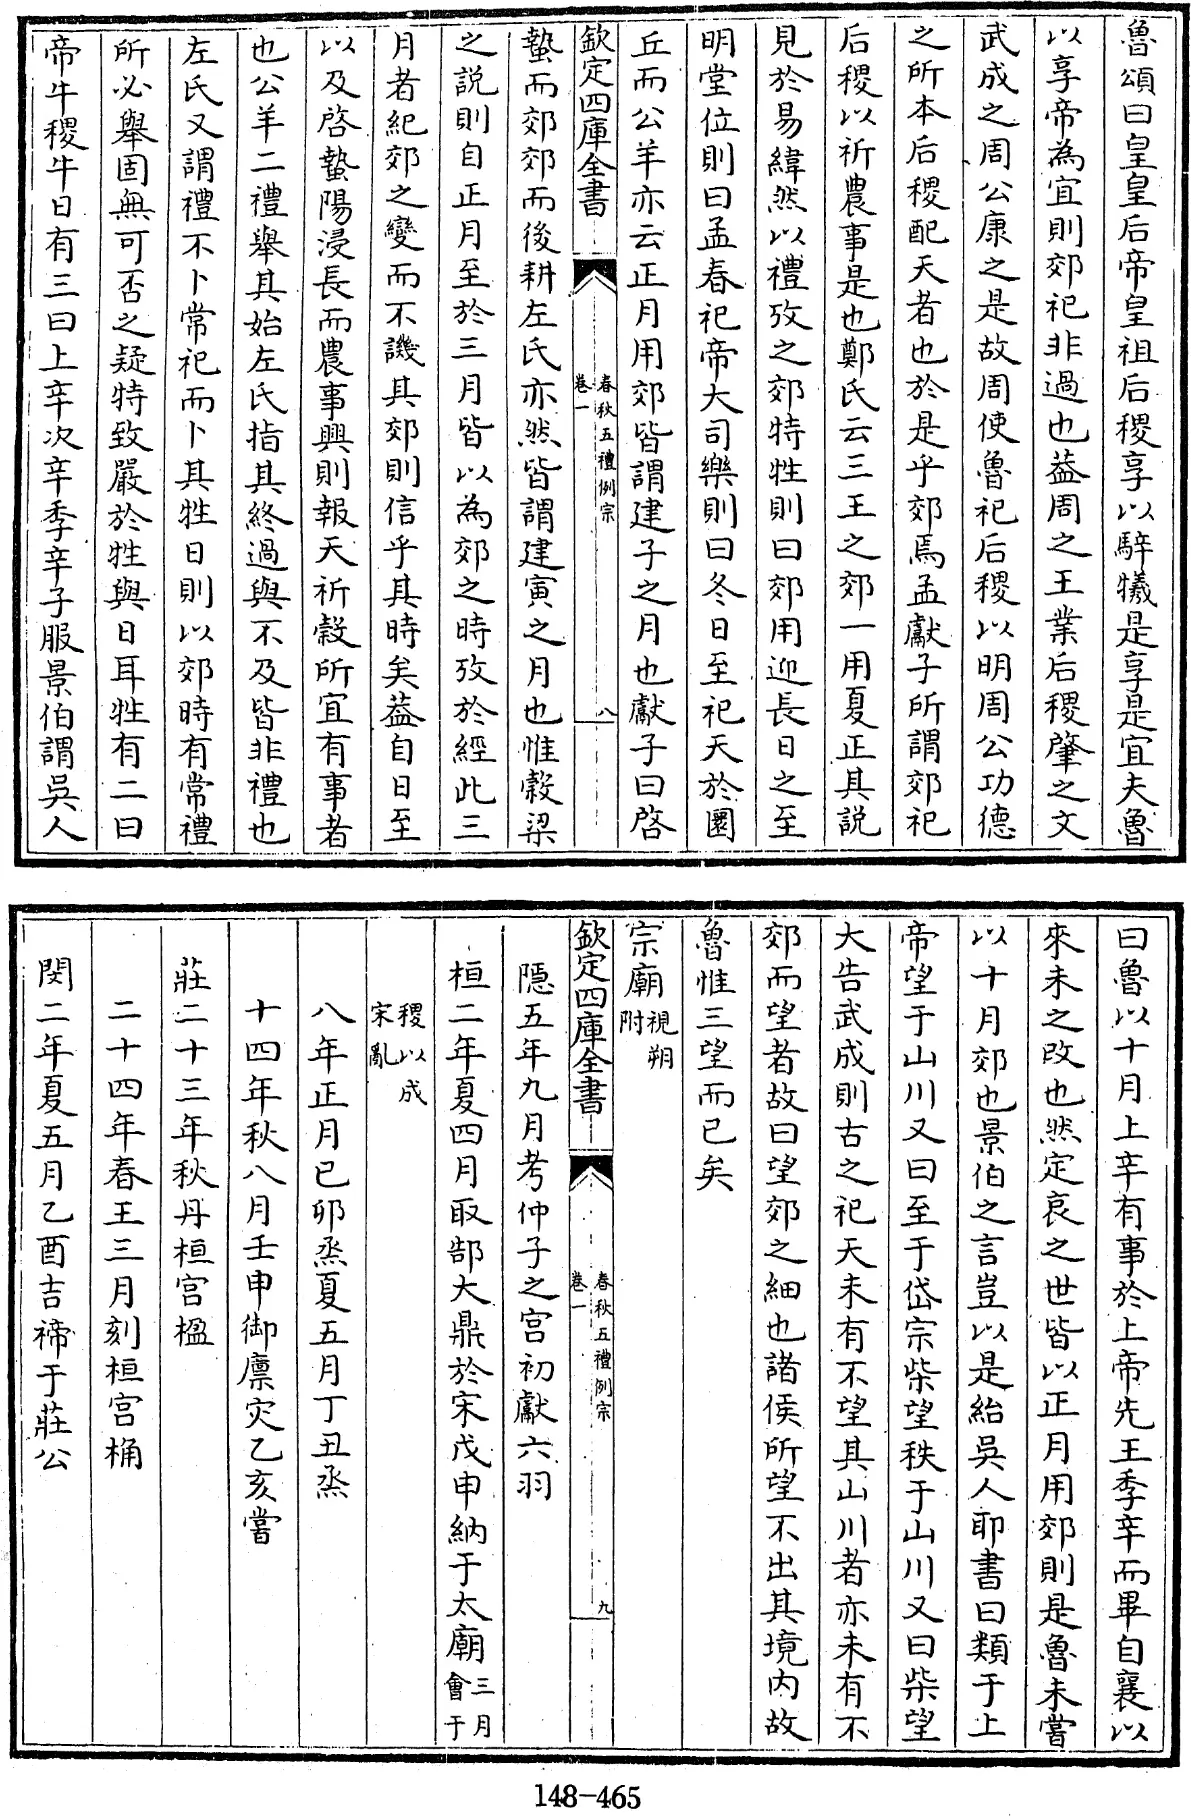 魯頌曰皇皇后帝皇祖后稷享以騂犧是享是宜夫魯
以享帝為宜則郊祀非過也葢周之王業后稷肇之文
武成之周公康之是故周使魯祀后稷以明周公功德
之所本后稷配天者也於是乎郊焉孟獻子所謂郊祀
后稷以祈農事是也鄭氏云三王之郊一用夏正其說
見於易緯然以禮攷之郊特牲則曰郊用迎長日之至
明堂位則曰孟春祀帝大司樂則曰冬日至祀天於圜
丘而公羊亦云正月用郊皆謂建子之月也獻子曰啓
欽定四庫全書
春秋五禮例宗
卷一
八
蟄而郊郊而後耕左氏亦然皆謂建寅之月也惟穀梁
之說則自正月至於三月皆以為郊之時攷於經此三
月者紀郊之變而不譏其郊則信乎其時矣葢自日至
以及啓蟄陽浸長而農事興則報天祈穀所宜有事者
也公羊二禮舉其始左氏指其終過與不及皆非禮也
左氏又謂禮不卜常祀而卜其牲日則以郊時有常禮
所必舉固無可否之疑特致嚴於牲與日耳牲有二曰
帝牛稷牛日有三曰上辛次辛季辛子服景伯謂吳人
曰魯以十月上辛有事於上帝先王季辛而畢自襄以
來未之改也然定哀之世皆以正月用郊則是魯未嘗
以十月郊也景伯之言豈以是紿吳人耶書曰類于上
帝望于山川又曰至于岱宗柴望秩于山川又曰柴望
大告武成則古之祀天未有不望其山川者亦未有不
郊而望者故曰望郊之細也諸侯所望不出其境內故
魯惟三望而已矣
宗廟視朔附
欽定四庫全書
春秋五禮例宗
卷一
九
隱五年九月考仲子之宮初獻六羽
桓二年夏四月取郜大鼎於宋戊申納于太廟三月會于
稷以成宋亂
八年正月已卯烝夏五月丁丑烝
十四年秋八月壬申御廩灾乙亥嘗
莊二十三年秋丹桓宮楹
二十四年春王三月刻桓宮桷
閔二年夏五月乙酉吉禘于莊公
148-465